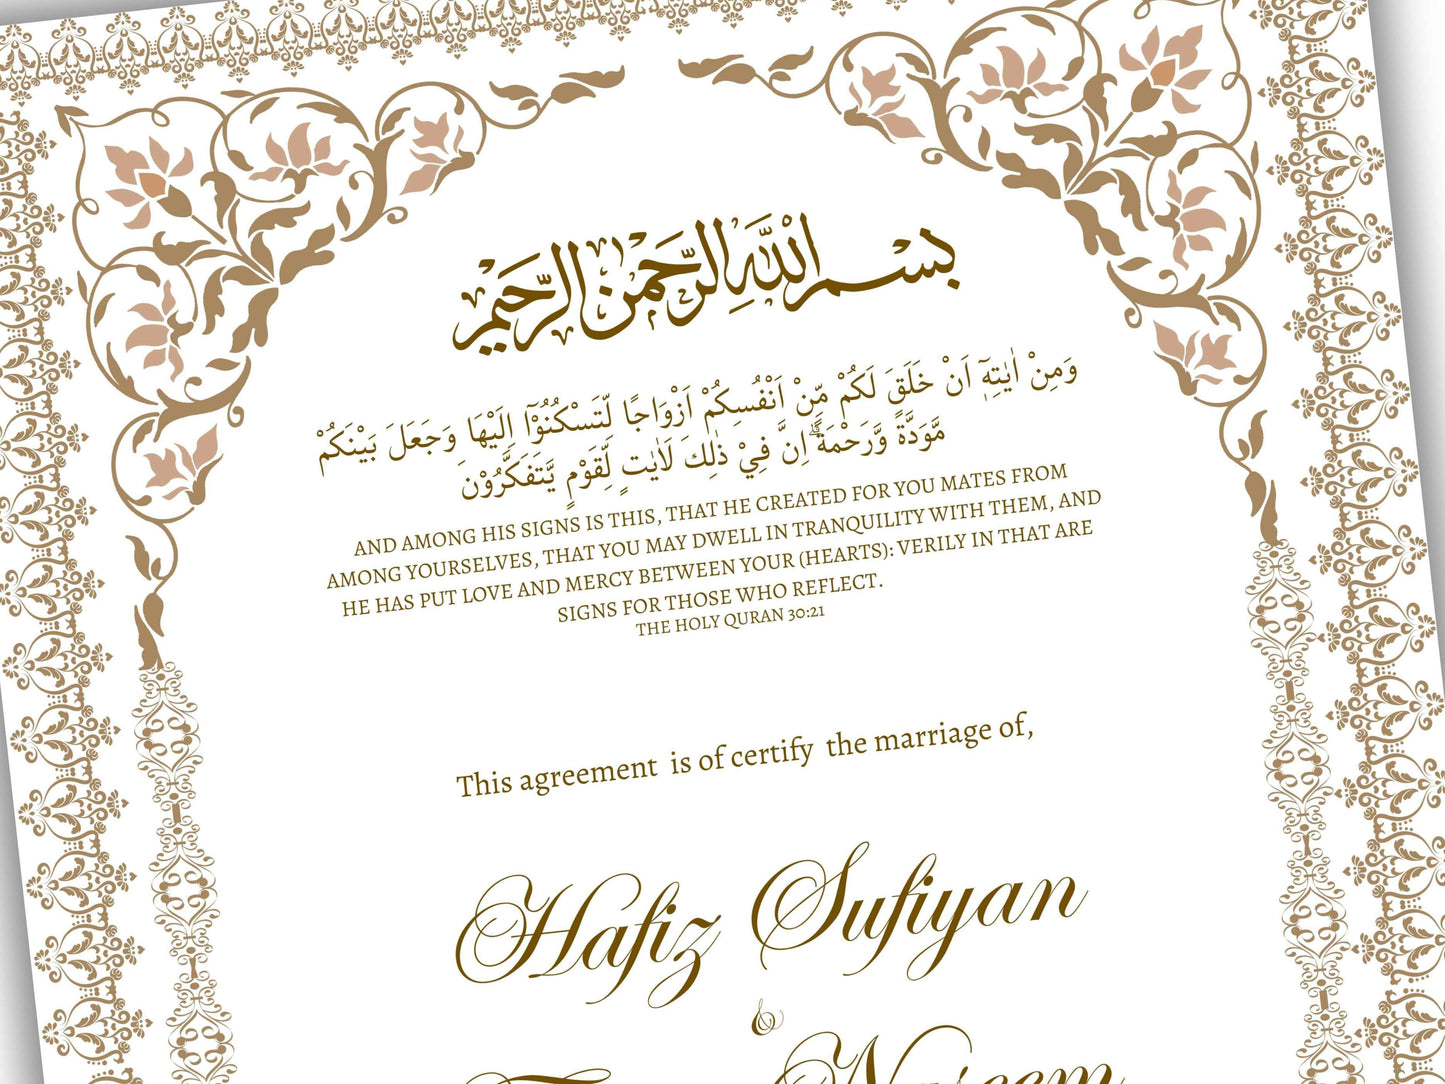 بسم الله الرحمن الرحيم
وَمِنْ اٰيٰتِهٖٓ اَنْ خَلَقَ لَكُمْ مِّنْ اَنْفُسِكُمْ اَزْوَاجًا لِّتَسْكُنُوْٓا اِلَيْهَا وَجَعَلَ بَيْنَكُمْ
مَّوَدَّةً وَّرَحْمَةً ۗاِنَّ فِيْ ذٰلِكَ لَاٰيٰتٍ لِّقَوْمٍ يَّتَفَكَّرُوْنَ
AND AMONG HIS SIGNS IS THIS, THAT HE CREATED FOR YOU MATES FROM
AMONG YOURSELVES, THAT YOU MAY DWELL IN TRANQUILITY WITH THEM, AND
HE HAS PUT LOVE AND MERCY BETWEEN YOUR (HEARTS): VERILY IN THAT ARE
SIGNS FOR THOSE WHO REFLECT.
THE HOLY QURAN 30:21
This agreement is of certify the marriage of,
Hafiz Sufiyan
&
Naseem